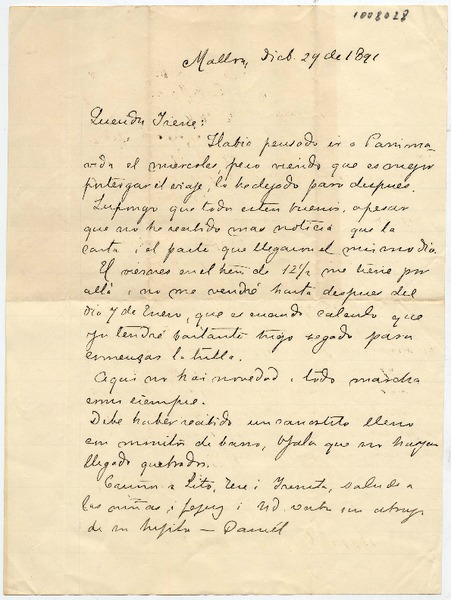 1008028
Malloa, Dicb. 29 de 1891
Querida Irene:
Habia pensado ir a
el miercoles, pero viendo que es mejor
postergar el viaje, lo he dejado para despues.
Supongo que todos esten buenos, apesar
que no he recibido mas noticia que la
carta i el parte que llegaron el mismo dia.
El viernes en el tren de 12½ me tiene por
allá i no me vendré hasta despues del
dia 7 de Enero, que es cuando calculo que
ya tendré bastante trigo segado para
comenzar la trilla.
Aqui no hai novedad i todo marcha
como siempre.
Debe haber recibido un canastito lleno
con monitos de barro, Ojala que no hayan
llegado quebrados.
Cariños a Tito, i Irenita, saludes a
las niñas i i Ud. reciba un abrazo
de su hijito — Daniel